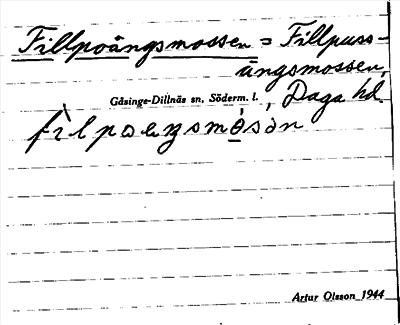 Fillpoängsmossen = Fillpuss-
ängsmossen,
Gåsinge-Dillnäs sn, Söderm. l., Daga hd.
fìlpoæŋsmósàn
Artur Olsson 1944